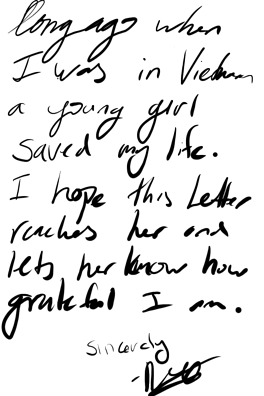 long ago when
I was in Vietnam
a young girl
saved my life.
I hope this letter
reaches her and
lets her know how
grateful I am.
Sincerely